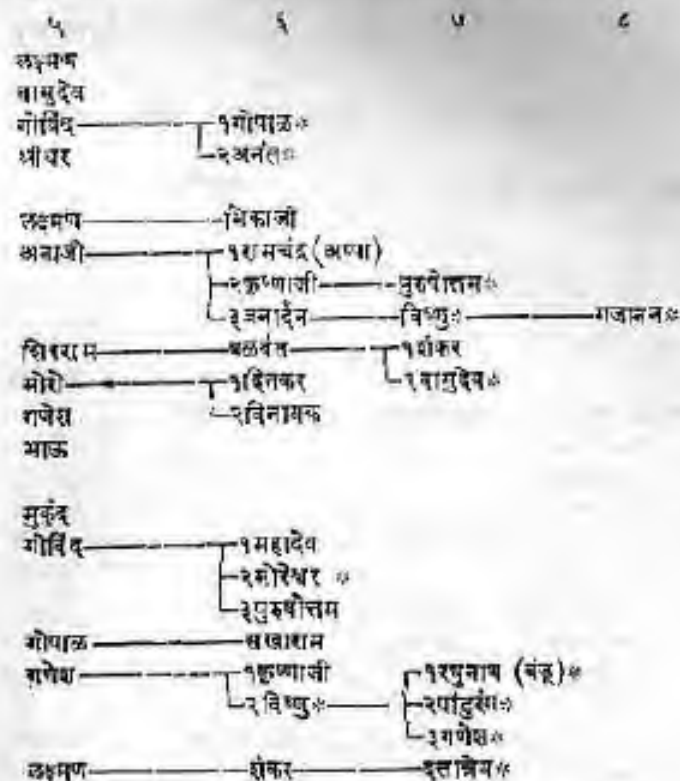 ५ ६ ७ ८
लक्ष्मण
वासुदेव
गोविंद १गोपाळ*
श्रीधर २अनंत*
लक्ष्मण भिकाजी
अबाजी १रामचंद्र (अण्णा)
२कृष्णाजी पुरुषोत्तम*
३जनार्दन विष्णु* गजानन*
शिवराम बळवंत १शंकर
मोरो १दिनकर २वासुदेव*
गणेश २विनायक
भाऊ
मुकुंद
गोविंद १महादेव
२मोरेश्वर *
३पुरुषोत्तम
गोपाळ सखाराम
गणेश १कृष्णाजी १रघुनाथ (बंडू)*
२विष्णु* २पांडुरंग*
३गणेश*
लक्ष्मण शंकर दत्तात्रेय*